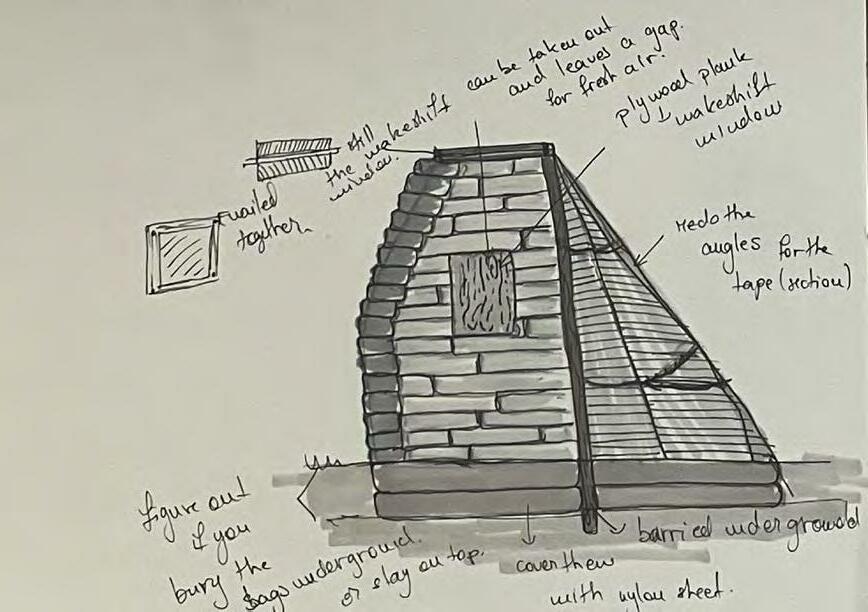 can be taken out
and leaves a gap.
for fresh air.
plywood plank
↳ makeshift
window
still
the makeshift
window.
nailed
together.
redo the
angles for the
tape (section)
figure out
if you
bury the
bags underground.
or stay on top.
cover them
with nylon sheet.
barried undergrounded